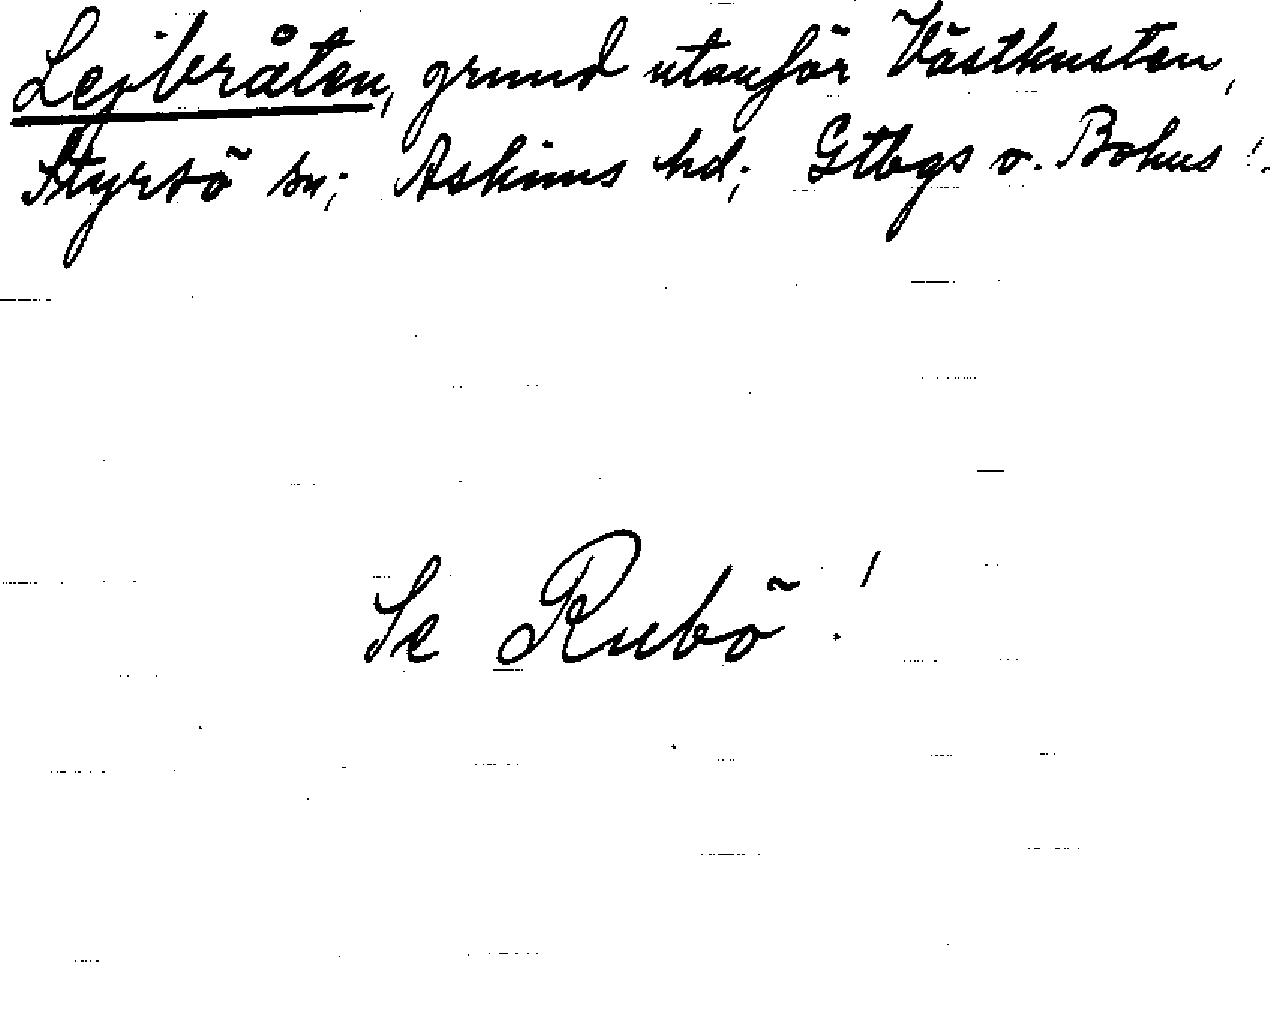 Lejbråten, grund utanför Västkusten,
Styrsö sn; Askims hd; Gtbgs o. Bohus l.
Se Rubö!